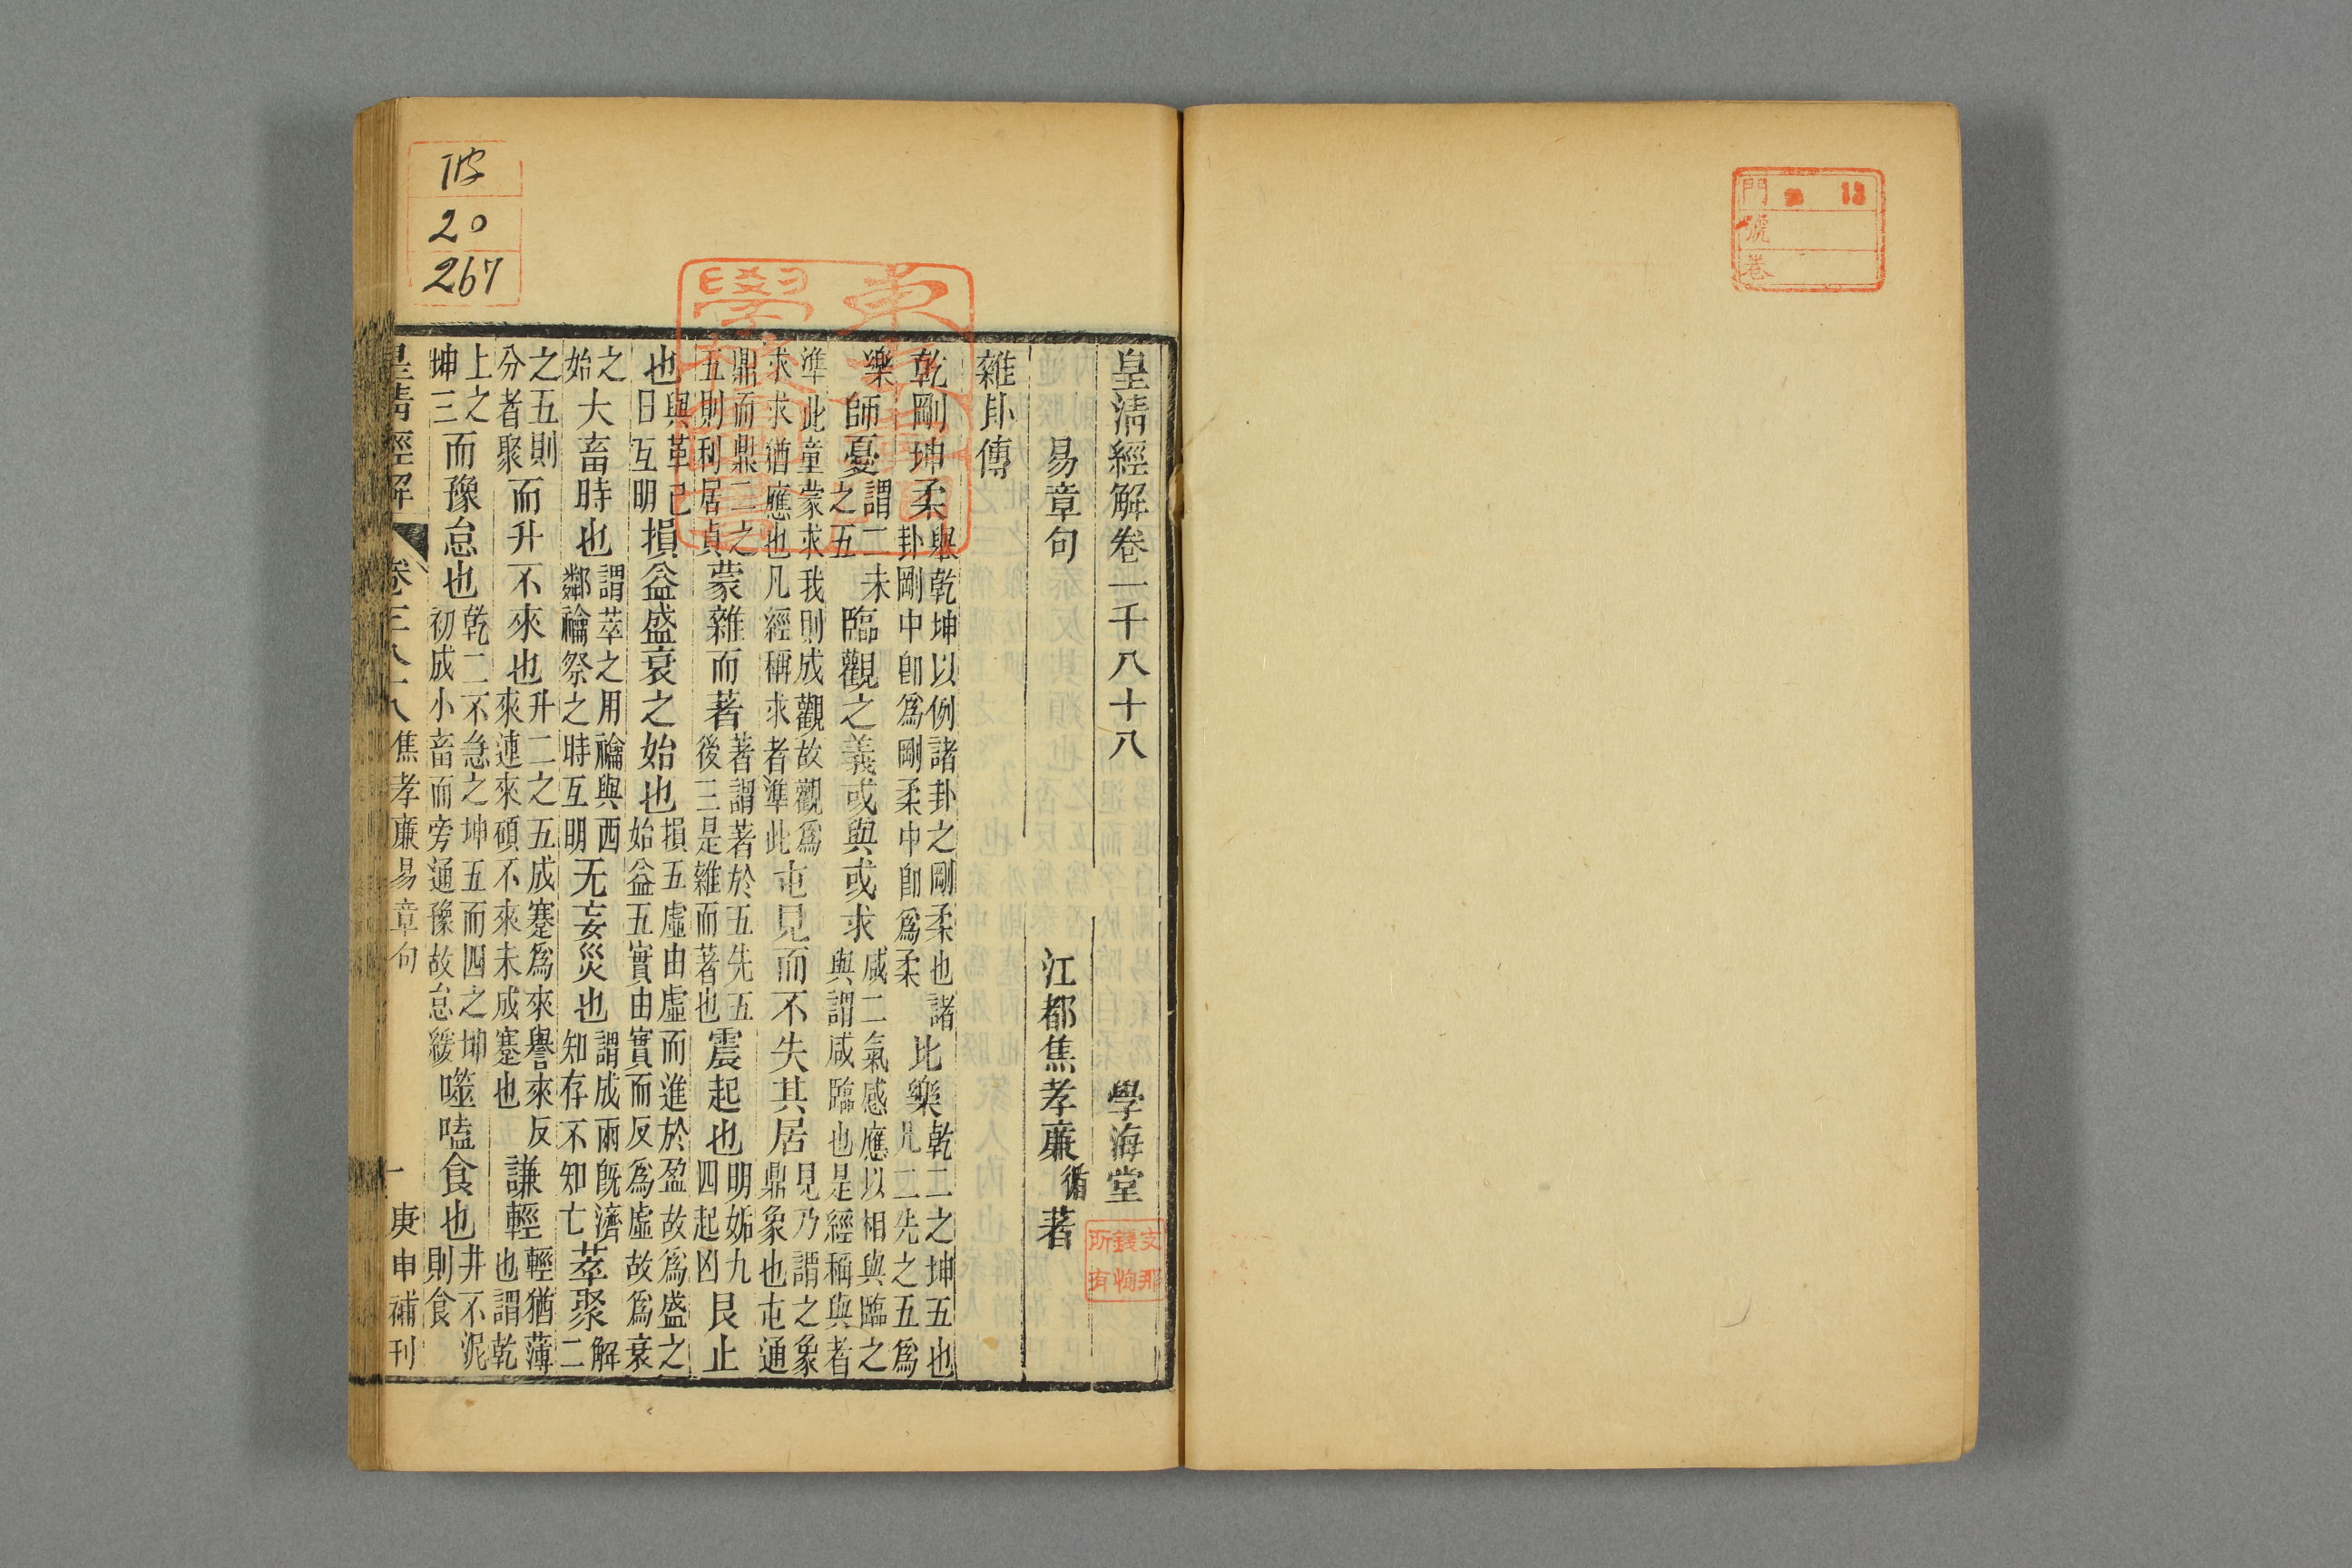 門 號 卷
皇淸經解卷一千八十八 學海堂
易章句 江都焦孝廉循著
雜卦傳
乾剛坤柔舉乾坤以例諸卦之剛柔也諸卦剛中卽爲剛柔中卽爲柔比樂乾二之坤五也凡二先之五爲
樂師憂謂二未之五臨觀之義或與或求咸二氣感應以相與臨之與謂咸臨也是經稱與者
準此童蒙求我則成觀故觀爲求求猶應也凡經稱求者準此屯見而不失其居見乃謂之象鼎象也屯通
鼎而鼎二之五則利居貞蒙雜而著著謂著於五先五後三是雜而著也震起也明姤九四起凶艮止
也與革已日互明損益盛衰之始也損五虛由虛而進於盈故爲盛之始益五實由實而反爲虛故爲衰
之始大畜時也謂萃之用禴與西鄰禴祭之時互明无妄災也謂成兩旣濟知存不知亡萃聚解二
之五則分者聚而升不來也升二之五成蹇爲來譽來反來連來碩不來未成蹇也謙輕輕猶薄也謂乾
上之坤三而豫怠也乾二不急之坤五而四之坤初成小畜而旁通豫故怠緩噬嗑食也井不泥則食
皇淸經解 焦孝廉易章句 一 庚申補刊
20
267